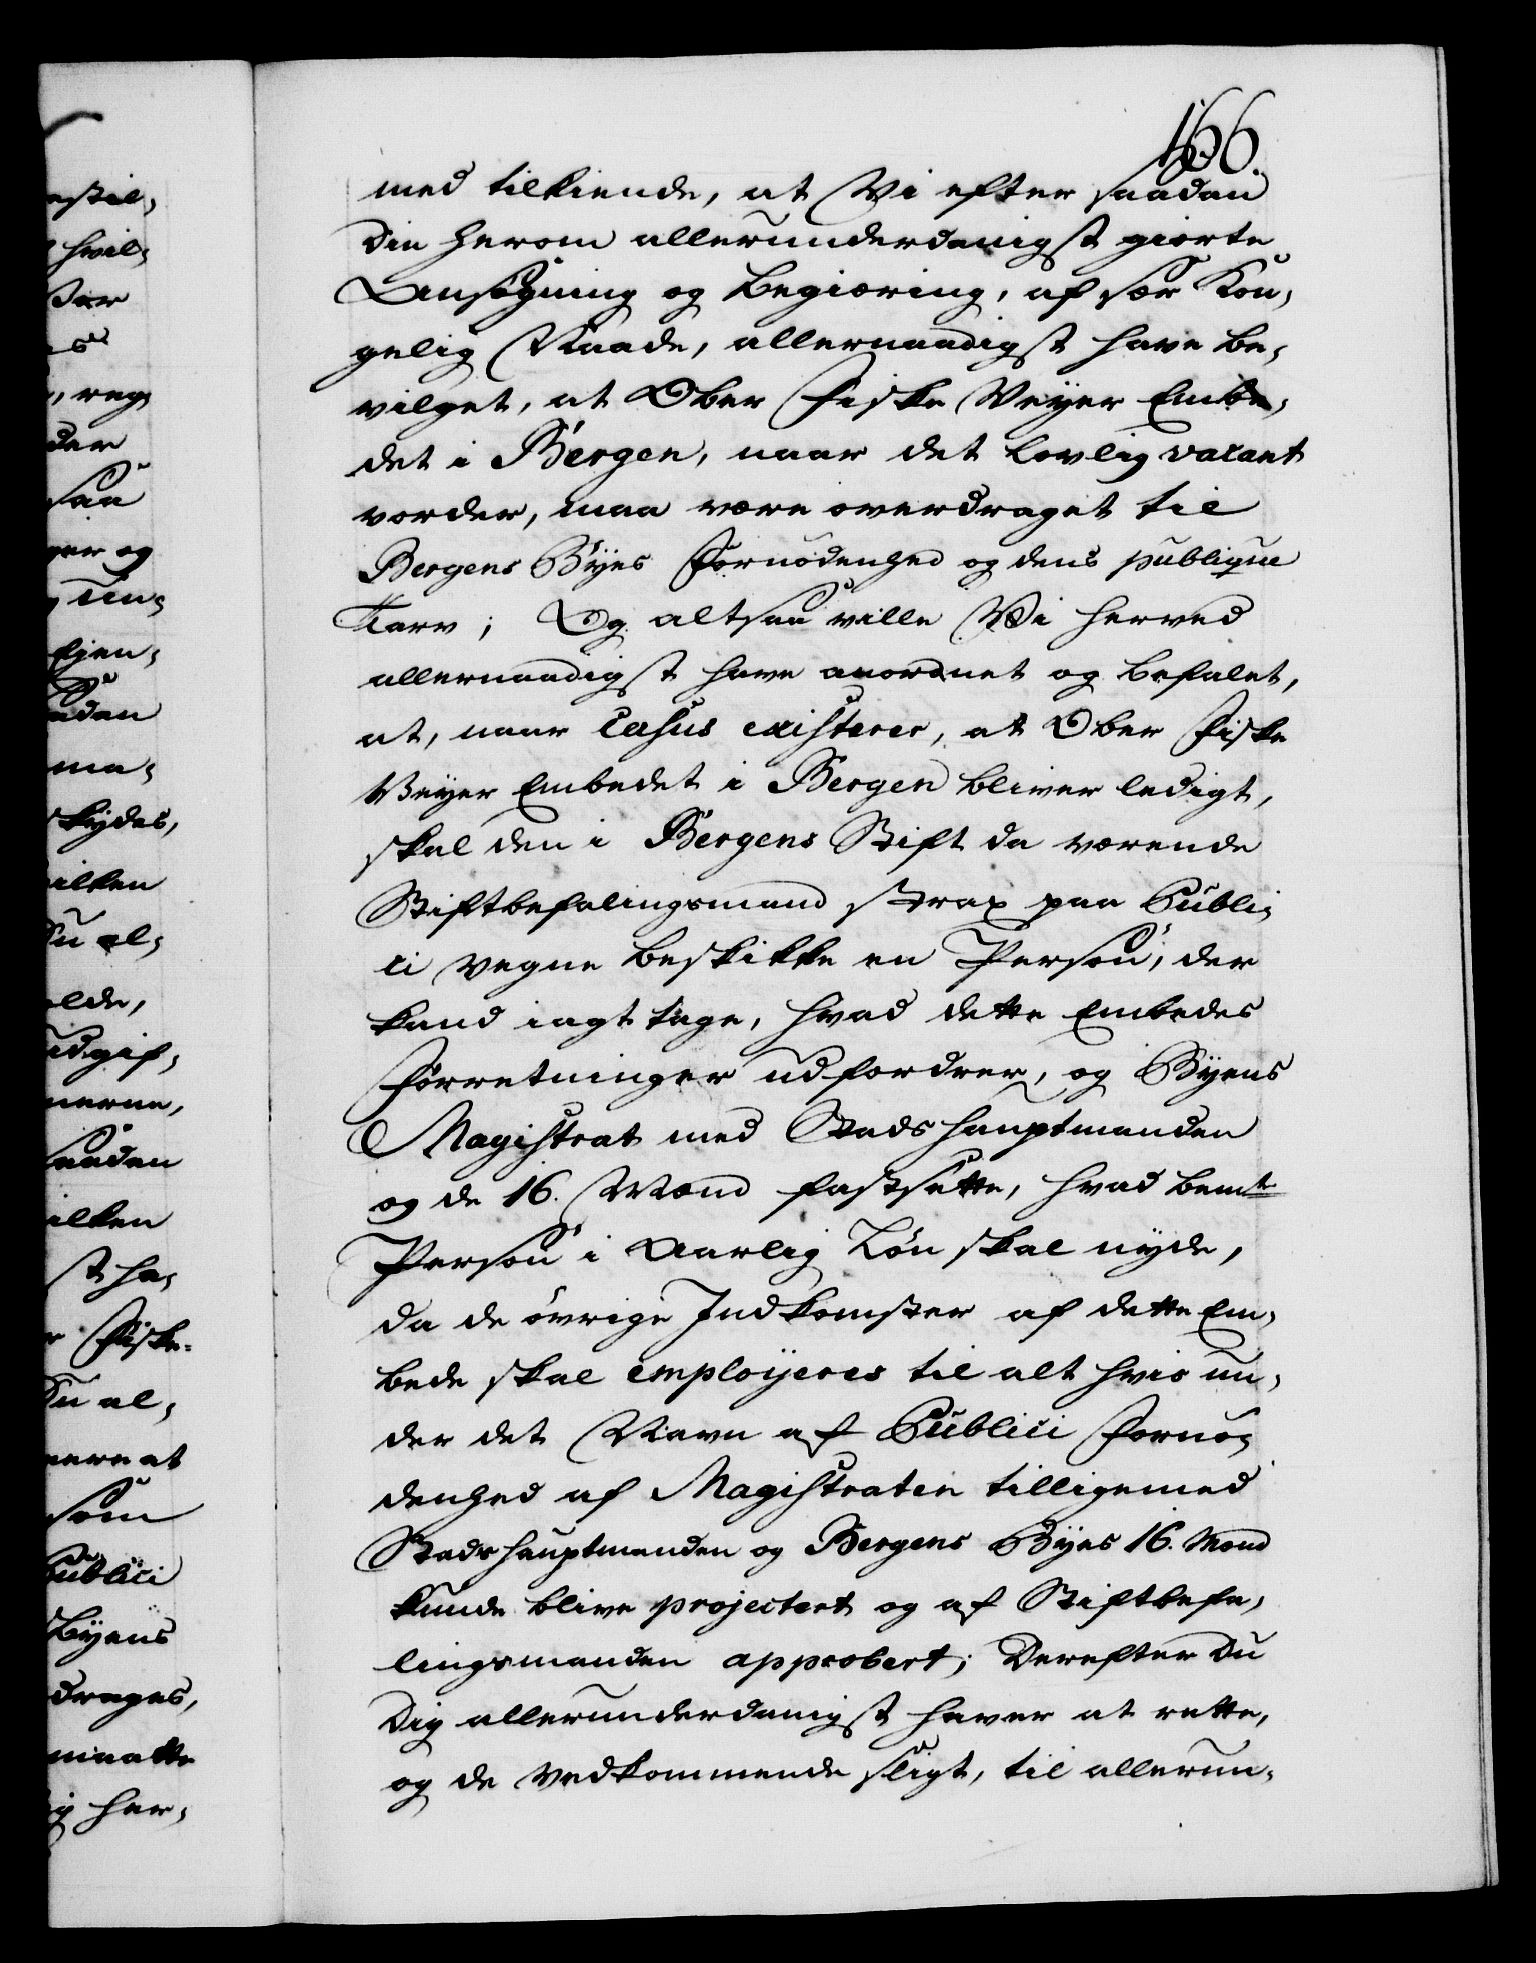 166.
med tilkiende, at Vi efter saadan
Din herom allerunderdanigst giorte
Ansøgning og Begiæring, af sær Kon-
gelig Naade, allernaadigst have be-
vilget, at Ober Fiske Veyer Embe-
det i Bergen, naar det lovlig vacant
vorder, maa være overdraget til
Bergens Byes Fornødenhed og dens publique
Tarv; Og altsaa ville Vi herved
allernaadigst have anordnet og befalet,
at, naar Casus existerer, at Ober Fiske
Veyer Embedet i Bergen bliver ledigt,
skal den i Bergens Stift da værende
Stiftbefalingsmand strax paa Publi-
ci vegne beskikke en Person, der
kand iagttage, hvad dette Embedes
Forretninger udfordrer, og Byens
Magistrat med Stadshauptmanden
og de 16. Mænd fastsætte, hvad bemt
Person i Aarlig Løn skal nyde,
da de øvrige Indkomster af dette Em-
bede skal employeres til alt hvis un-
der det Navn af Publici Fornø-
denhed af Magistraten tilligemed
Stadshauptmanden og Bergens Byes 16. Mænd
kunde blive projectert og af Stiftbefa-
lingsmanden approbert; Derefter Du
Dig allerunderdanigst haver at rette,
og de Vedkommende sligt, til allerun-